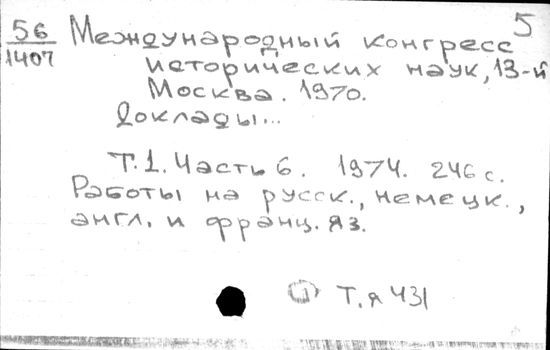 5
56
1407
Международный конгресс
исторических наук, 13-й
Москва. 1970.
Доклады...
Т.1. Часть 6. 1974. 246 с.
Работы на русск., немецк.,
англ. и франц. яз.
Т. я 431